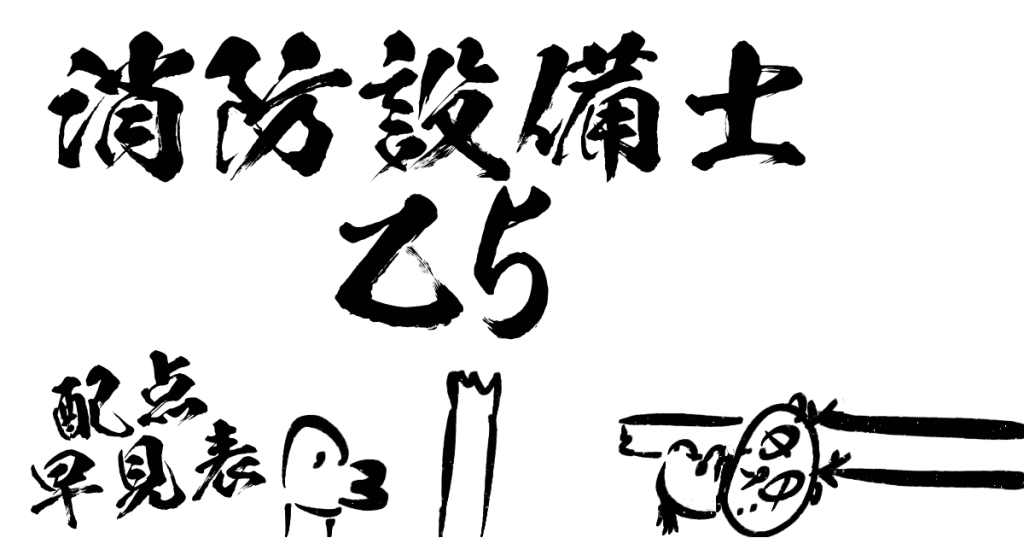 消防設備士
乙5
配点
早見表